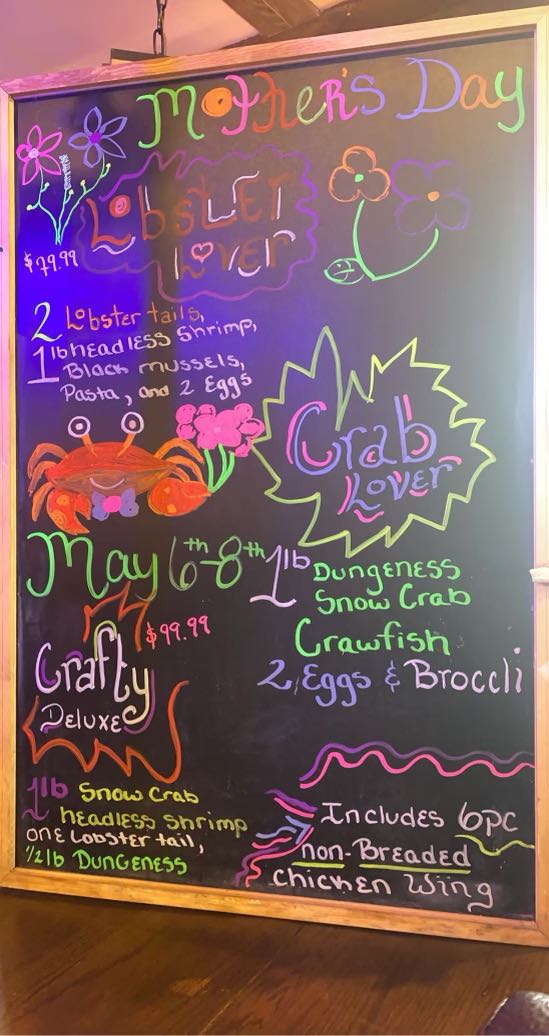 Mother's Day
Lobster
Lover
$79.99
2 Lobster tails,
1lb headless Shrimp,
Black mussels,
Pasta, and 2 Eggs
Crab
Lover
May 6th-8th
1lb Dungeness
Snow Crab
Crawfish
2 Eggs & Broccli
$99.99
Crafty
Deluxe
1lb Snow Crab
headless shrimp
one Lobster tail,
1/2 lb Dungeness
Includes 6pc
non-Breaded
chicken Wing